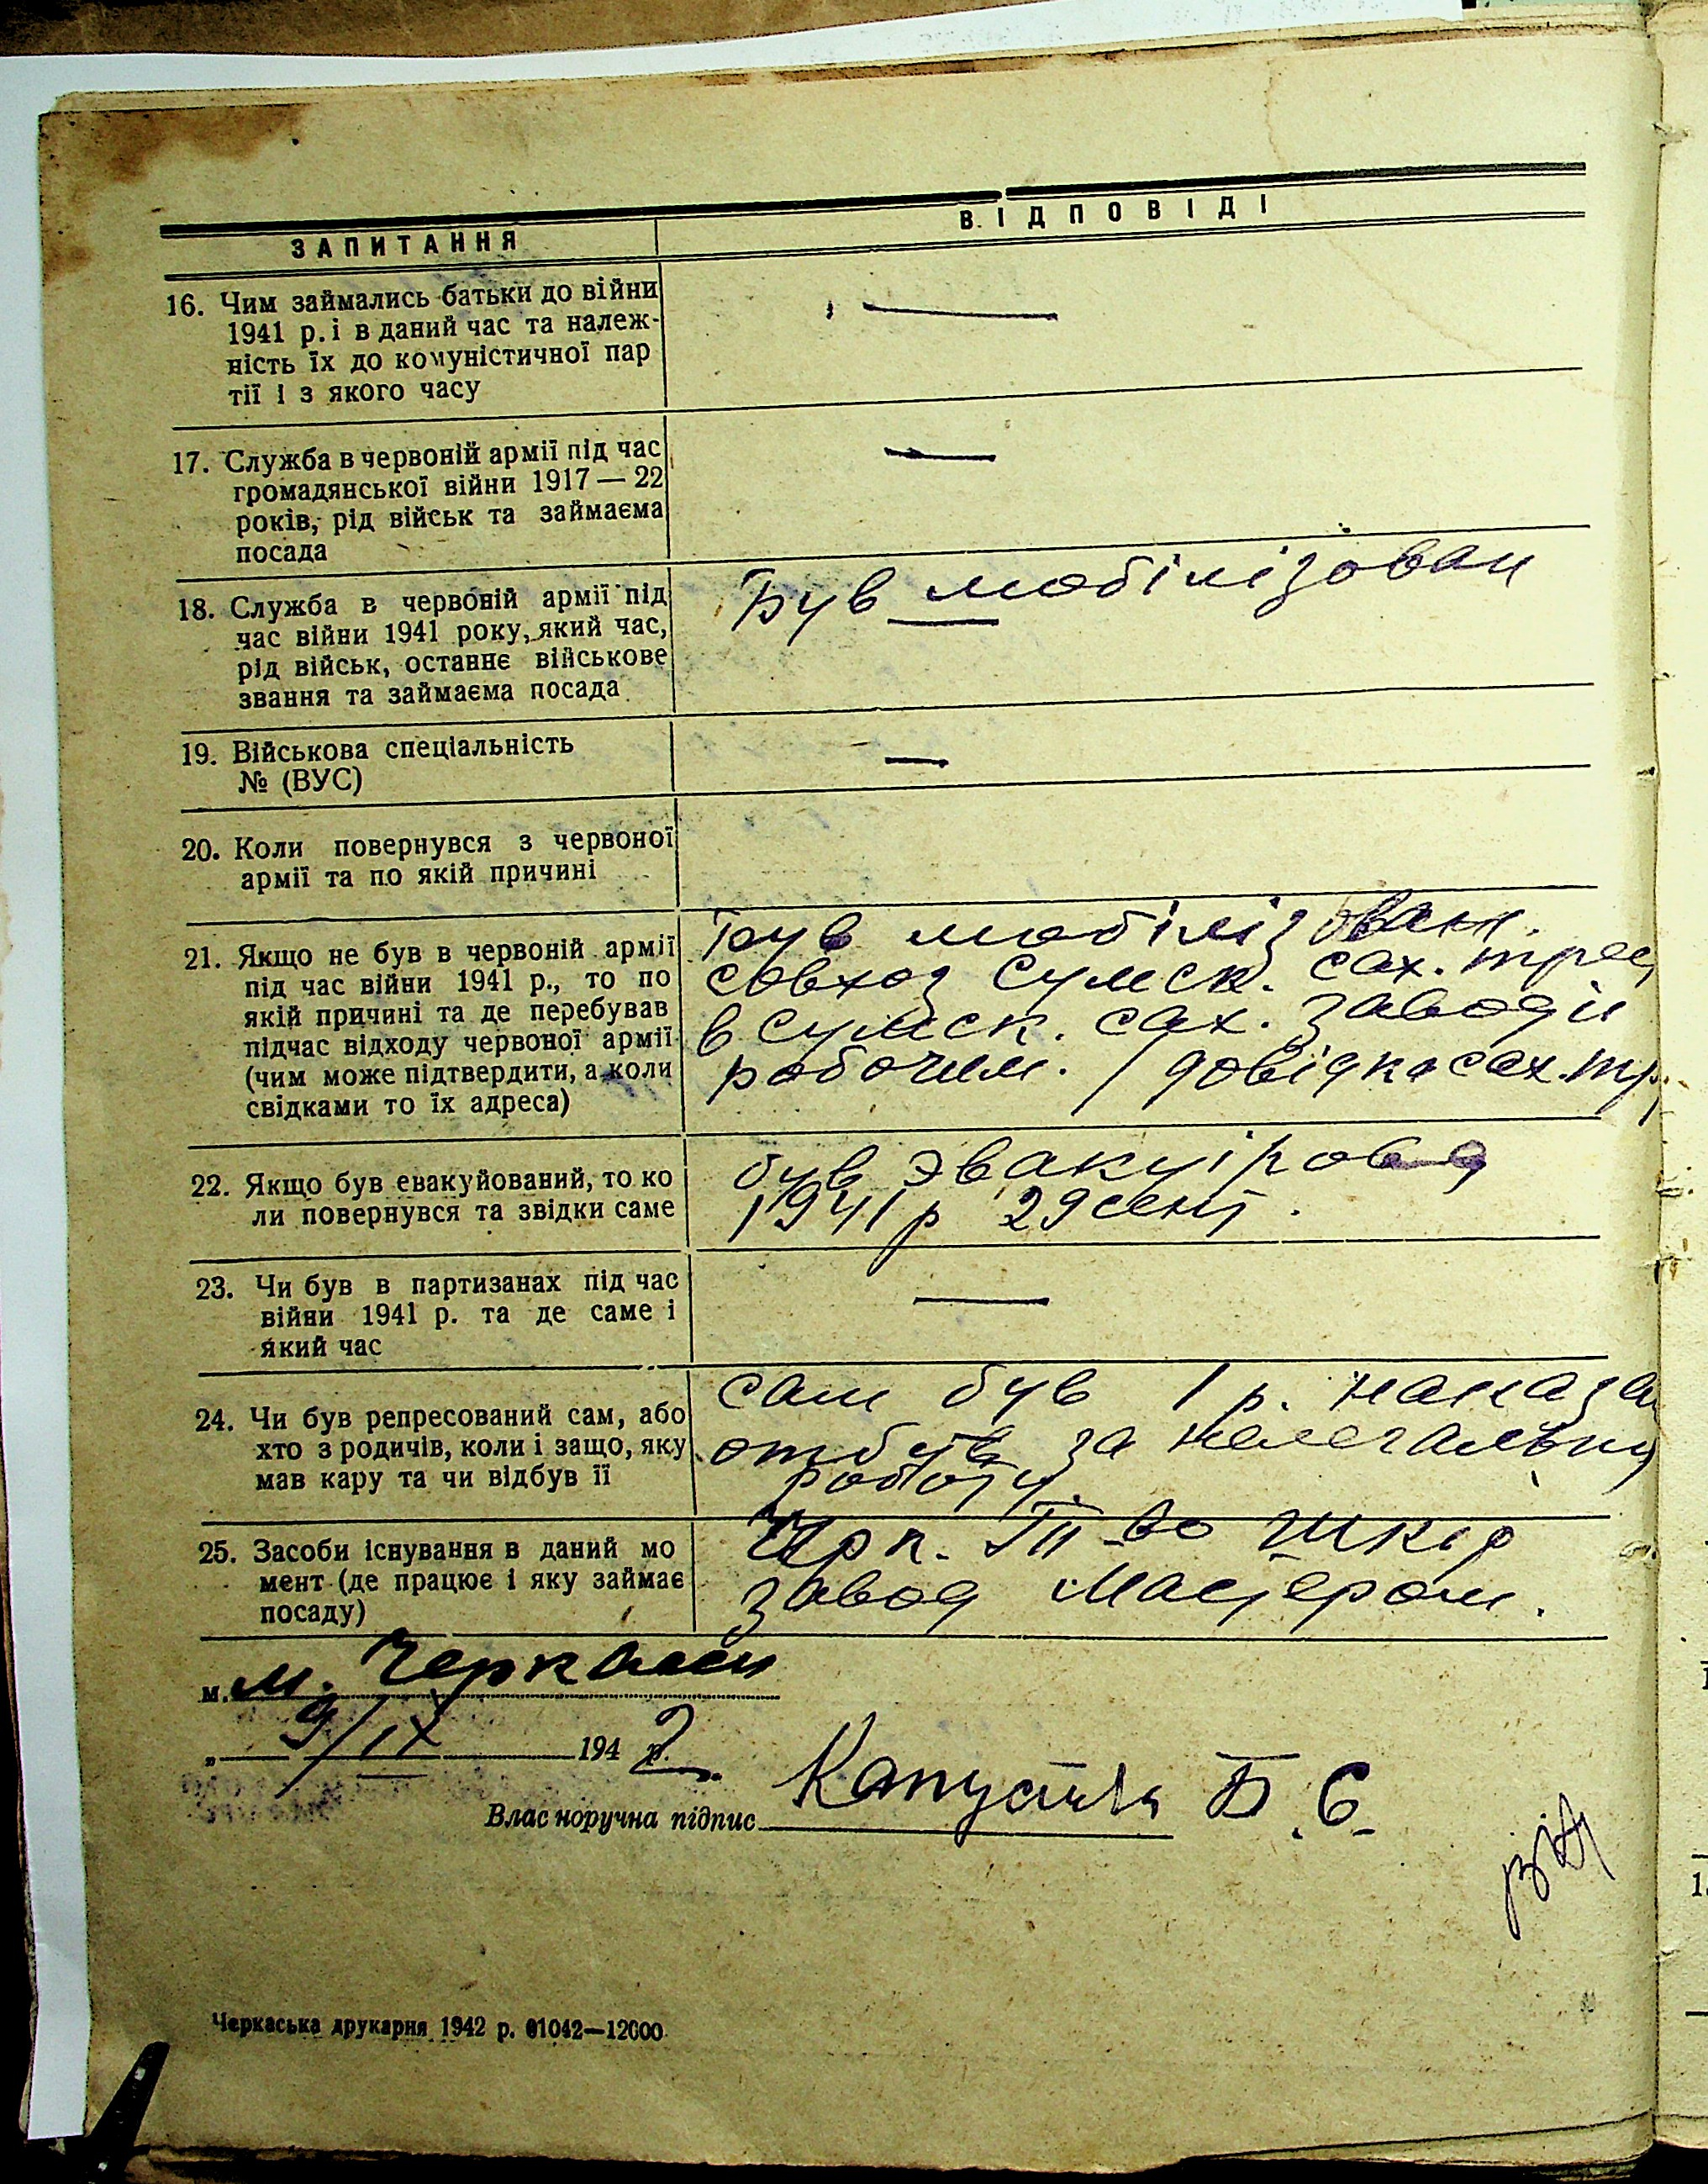 ЗАПИТАННЯ
ВІДПОВІДІ
16. Чим займались батьки до війни
1941 р. і в даний час та належ-
ність їх до комуністичної пар
тії і з якого часу
—
17. Служба в червоній армії під час
громадянської війни 1917 — 22
років, рід військ та займаєма
посада
—
18. Служба в червоній армії під
час війни 1941 року, який час,
рід військ, останнє військове
звання та займаєма посада
Був мобілізован
19. Військова спеціальність
№ (ВУС)
—
20. Коли повернувся з червоної
армії та по якій причині
21. Якщо не був в червоній армії
під час війни 1941 р., то по
якій причині та де перебував
підчас відходу червоної армії
(чим може підтвердити, а коли
свідками то їх адреса)
Був мобілізован.
совхоз Сумск. сах. трес
в Сумск. сах. заводи
рабочим. / довідка сах. тр.
22. Якщо був евакуйований, то ко
ли повернувся та звідки саме
був эвакуірова
1941 р 29 сент.
23. Чи був в партизанах під час
війни 1941 р. та де саме і
який час
—
24. Чи був репресований сам, або
хто з родичів, коли і защо, яку
мав кару та чи відбув її
сам був 1 р. наказа
отбув за нелегальну
роботу.
25. Засоби існування в даний мо
мент (де працює і яку займає
посаду)
шкір
завод Мастером.
м. м. Черкаси
„ 9/IX 194 2 р.
Власноручна підпис Капуста Б. С.
Черкаська друкарня 1942 р. 01042—12000